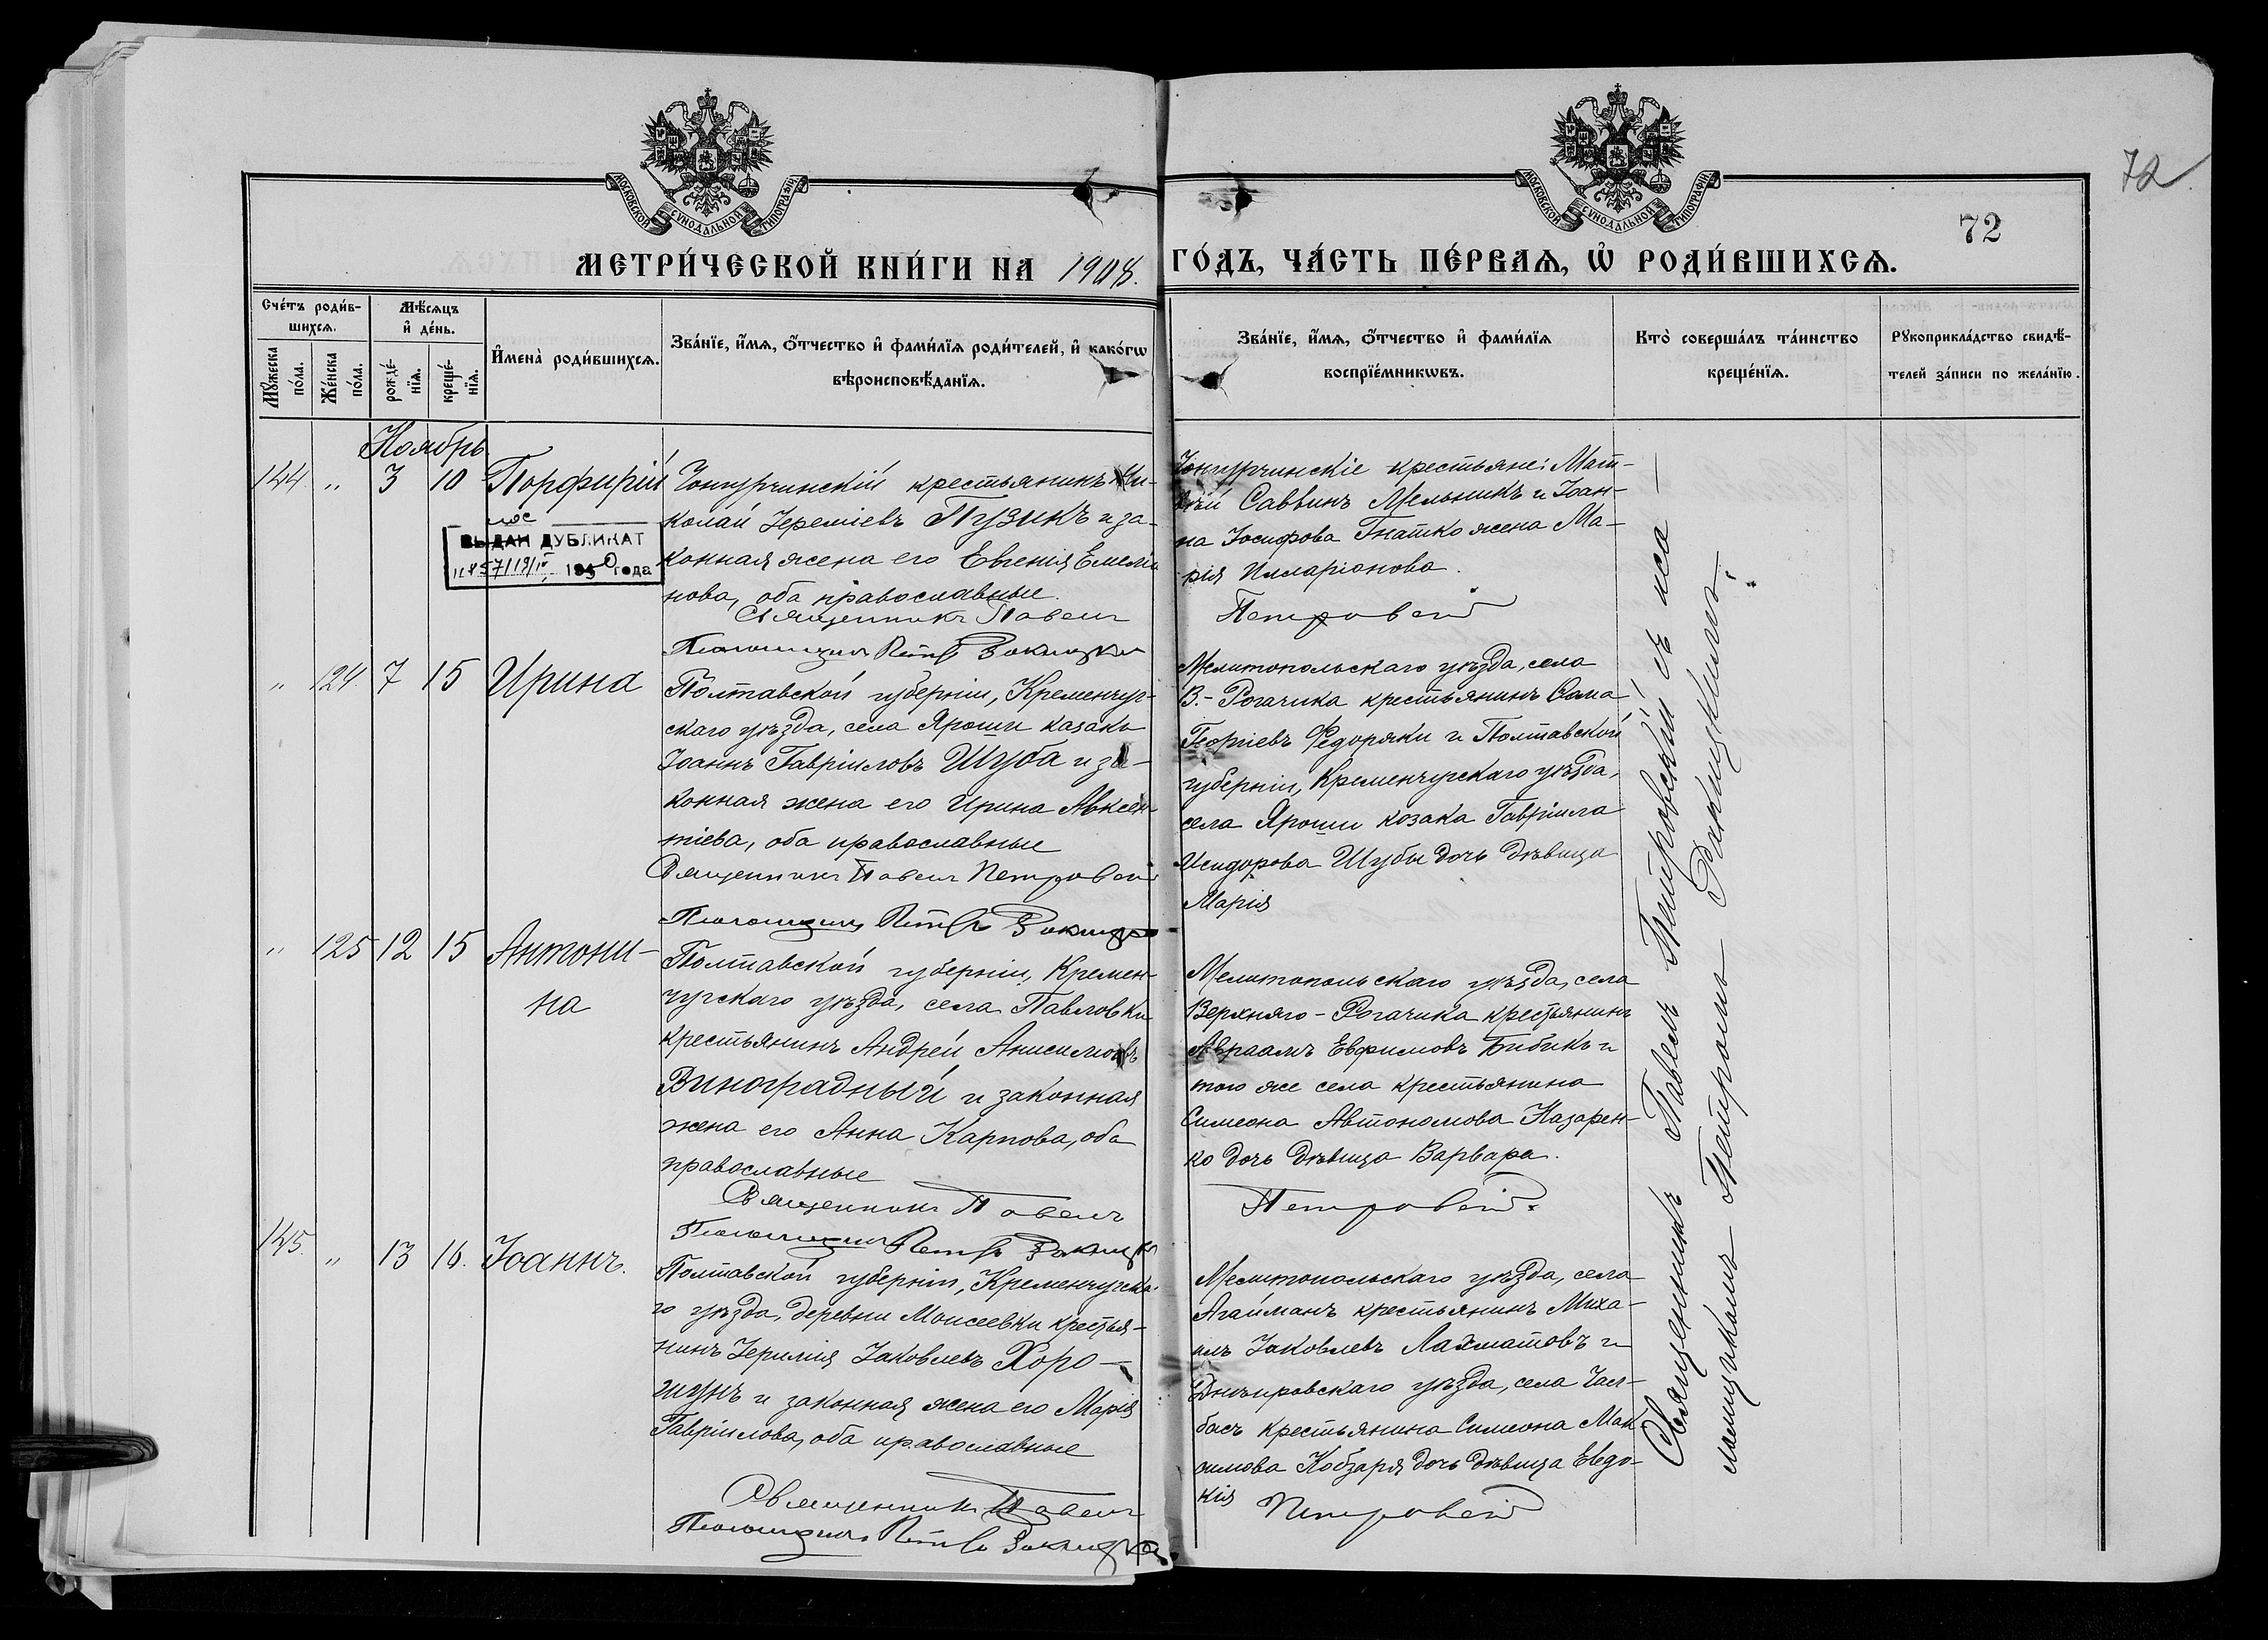 72
72
МОСКОВСКОЙ СУНОДАЛЬНОЙ ТИПОГРАФІИ
МОСКОВСКОЙ СУНОДАЛЬНОЙ ТИПОГРАФІИ
МЕТРИ́ЧЕСКОЙ КНИ́ГИ НА 1908.
ГО́ДЪ, ЧА́СТЬ ПЕ́РВАѦ, Ѡ҆ РОДИ́ВШИХСѦ.
Сче́тъ роди́в-
шихсѧ.
Мꙋ́жеска
по́ла.
Же́нска
по́ла.
Мѣ́сѧцъ
и҆ де́нь.
рожде́-
нїѧ.
креще́-
нїѧ.
И҆мена̀ роди́вшихсѧ.
Зва́нїе, и҆́мѧ, ѻ҆́тчество и҆ фами́лїѧ роди́телей, и҆ како́гѡ
вѣроисповѣ́данїѧ.
Зва́нїе, и҆́мѧ, ѻ҆́тчество и҆ фами́лїѧ
воспрїе́мникѡвъ.
Кто̀ соверша́лъ та́инство
креще́нїѧ.
Рꙋкоприкла́дство свидѣ́-
телей за́писи по жела́нїю.
Ноябрь
144. " 3 10 Порфирій
ВЫДАН ДУБЛИКАТ
1950 года
Чонгурчинскій крестьянинъ Ни-
колай Іереміевъ Пузикъ и за-
конная жена его Евгенія Емелія-
нова, оба православные.
Священникъ Павелъ
Псаломщикъ Петръ
Чонгурчинскіе крестьяне: Мат-
ѳей Саввинъ Мельникъ и Іоан-
на Іосифова Гнатко жена Ма-
рія Илларіонова.
Петровскій
" 124. 7 15 Ирина
Полтавской губерніи, Кременчуг-
скаго уѣзда, села Яроши казакъ
Іоаннъ Гавріиловъ Шуба и за-
конная жена его Ирина Авксен-
тіева, оба православные
Священникъ Павелъ Петровскій
Псаломщикъ Петръ
Мелитопольскаго уѣзда, села
В.-Рогачика крестьянинъ
Георгіевъ Федоряки и Полтавской
губерніи, Кременчугскаго уѣзда,
села Яроши козака Гавріила
Исидорова Шубы дочь дѣвица
Марія
" 125 12 15 Антони-
на
Полтавской губерніи, Кремен-
чугскаго уѣзда, села Павловки
крестьянинъ Андрей Анисимовъ
Виноградный и законная
жена его Анна Карпова, оба
православные
Священникъ Павелъ
Псаломщикъ Петръ
Мелитопольскаго уѣзда, села
Верхняго-Рогачика крестьянинъ
Авраамъ Евфимовъ Бибикъ и
того же села крестьянина
Симеона Автономова Назарен-
ко дочь дѣвица Варвара.
Петровскій.
145. " 13 16. Іоаннъ.
Полтавской губерніи, Кременчугска-
го уѣзда, деревни Моисеевки крестья-
нинъ Іеримія Іаковлевъ Хоро-
шунъ и законная жена его Марія
Гавріилова, оба православные
Священникъ Павелъ
Псаломщикъ Петръ
Мелитопольскаго уѣзда, села
Агайманъ крестьянинъ Миха-
илъ Іаковлевъ Лахматовъ и
Днѣпровскаго уѣзда, села Чал-
басъ крестьянина Симеона Мак
симова Кобзаря дочь дѣвица Евдо-
кія Петровскій
Священникъ Павелъ Петровскій съ пса-
ломщикомъ Петромъ